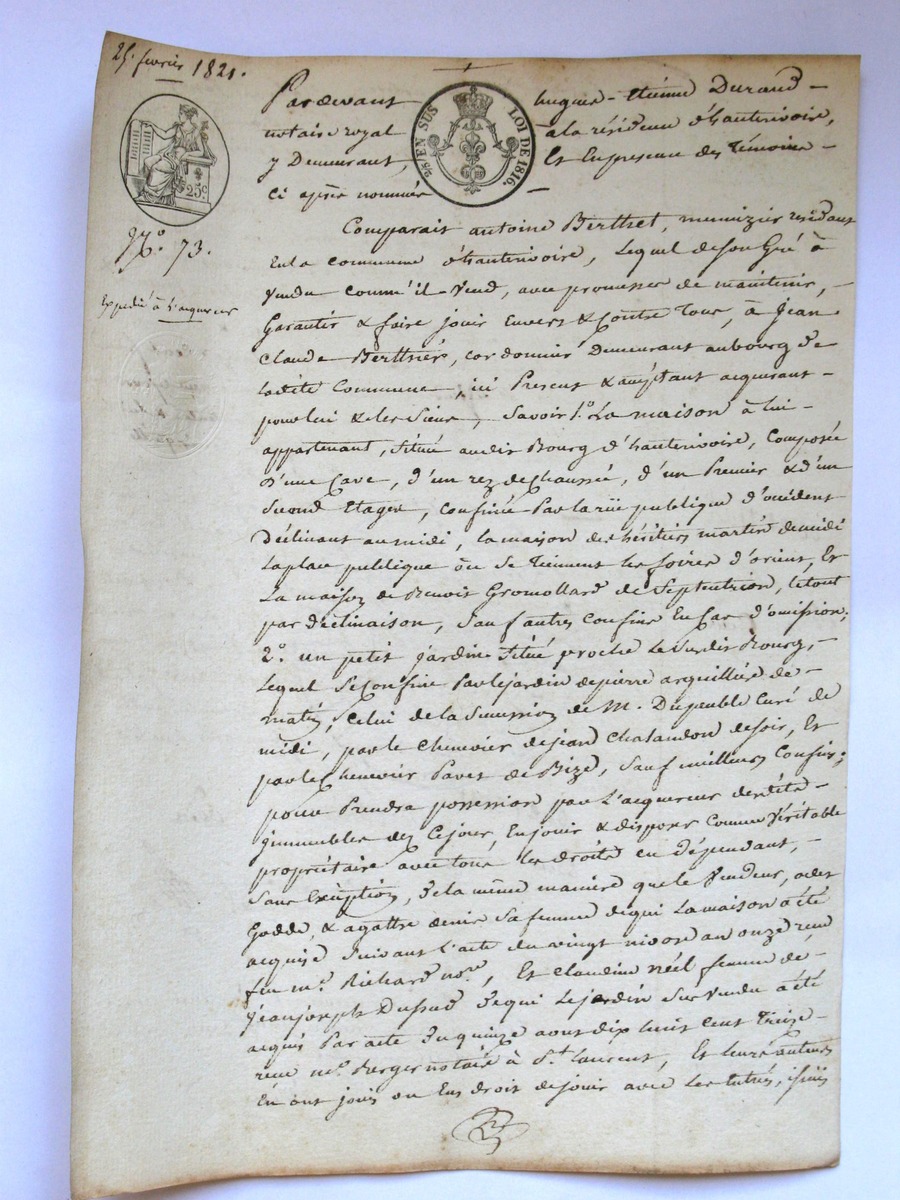 25. fevrier 1821.
25 c.
2/8 EN SUS LOI DE 1816.
N.º 73.
Expedié à l'acquereur
Pardevant hugues-Etienne Durand-
notaire royal à la résidence d'hauterivoire,
y Demeurant, Et En presence des Témoins-
ci après nommés-
Comparait antoine Berthet, menuizier résidant
En la commune d'hauterivoire, Lequel de son Gré à
Vendu comm'il-Vend, avec promesses de maintenir,-
Garantir & faire jouir Envers & Contre Tous, à Jean
Claude Berthier, cordonnier Demeurant au bourg de
ladite Commune, ici Present & acceptant acquerant-
pour lui & les Siens, Savoir 1.º La maison à lui-
appartenant, Située au dit Bourg d'hauterivoire, Composée
D'une Cave, d'un rez de Chaussée, d'un Premier & d'un
Second Etages, confinée Par la rüe publique d'occident
Déclinant au midi, la maison des héritiers martin de midi
La place publique ou se Tiennent les foires d'orient, Et
La maison de Benoit Gromollard de Septentrion, le tout
par déclinaison, Sauf autres Confins En Cas d'omission;
2.º un petit jardin Situé proche le Susdit Bourg,-
Lequel Se Confine Par le jardin de pierre arguillère de-
matin, Celui de la Succession de M. Dupeuble Curé de
midi, par le Chenevier de jean Chatandon de soir, Et
par le Chenevier Pavet de Bize, Sauf meilleurs Confins;
pour Prendre possession par L'acquereur desdits-
immeubles dez Cejour, En jouir & disposer Comme Véritable
propriétaire avec tous les droits en Dépendant,-
Sans Exception, De la même maniere que le Vendeur,
Godde, & agathe denis Sa femme de qui La maison a été
acquise Suivant l'acte du vingt nivose an onze reçu
feu m.e Richard no.re, Et Claudine néel femme de-
Jean joseph Dussud De qui Le jardin Sus Vendu a été
acquis Par acte Du quinze aout dix huit cent Treize-
reçu m.e Berger notaire à S.t Laurent, Et leurs auteurs
En ont jouis ou Eus droit de jouir avec Les Entrées, issües